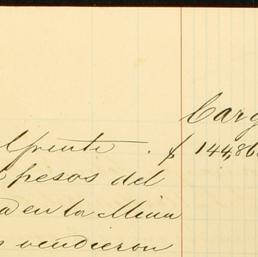 Carg
lfrente . $ 144,86
pesos del
en la Mina
vendieron